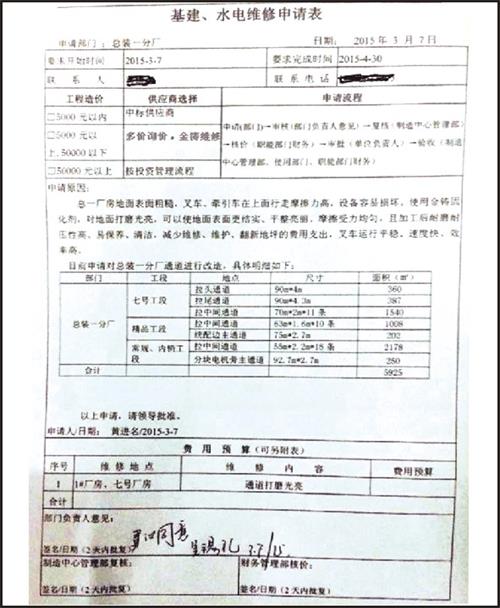 基建、水电维修申请表
申请部门：总装一分厂 日期：2015年3月7日
要求开始时间 2015-3-7 要求完成时间 2015-4-30
联系人 联系电话
工程造价 供应商选择 申请流程
□5000元以内 中标供应商
□5000元以上,50000以下 多价询价。金铸维修
□50000元以上 按投资管理流程
申请(部门)→审核(部门负责人意见)→复核(制造中心管理部)
→核价(职能部门财务)→审批(单位负责人)→验收(制造
中心管理部、使用部门、职能部门财务)
申请原因：
总一厂房地面表面粗糙，叉车、牵引车在上面行走摩擦力高，设备容易损坏，使用金铸固
化剂，对地面打磨光亮，可以使地面表面更结实、平整亮丽，摩擦受力均匀，且加工后耐磨耐
压性高、易保养、清洁，减少维修、维护、翻新地坪的费用支出，叉车运行平稳、速度快、效
率高。
目前申请对总装一分厂通道进行改造，具体明细如下：
部门 工段 地点 尺寸 面积（㎡）
总装一分厂 七号工段 拉头通道 90m*4m 360
拉尾通道 90m*4.3m 387
拉中间通道 70m*2m*11条 1540
精品工段 拉中间通道 63m*1.6m*10条 1008
统配边主通道 75m*2.7m 202
常规、内销工段 拉中间通道 55m*2.2m*18条 2178
分块电机旁主通道 92.7m*2.7m 250
合计 5925
以上申请，请领导批准。
申请人/日期：黄进名/2015-3-7
费用预算（可另附表）
序号 维修地点 维修内容 费用预算
1 1#厂房、七号厂房 通道打磨光亮
合计
部门负责人意见：
同意
签名/日期（2天内批复）
制造中心管理部复核： 财务管理部核价：
签名/日期（2天内批复） 签名/日期（2天内批复）